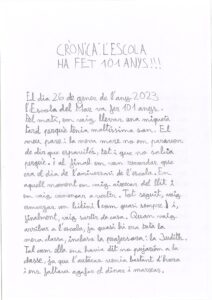 CRÒNICA L'ESCOLA
HA FET 101 ANYS!!!
El dia 26 de gener de l'any 2023
l'Escola del Mar va fer 101 anys.
Pel matí, em vaig llevar una miqueta
tard perquè tenia moltíssima son. El
meu pare i la meva mare no em paraven
de dir que espavilés, tot i que no sabia
perquè, i al final em van recordar que
era el dia de l'aniversari de l'escola. En
aquell moment em vaig aixecar del llit i
em vaig començar a vestir. Tot seguit, vaig
esmorzar un bikini (com quasi sempre) i,
finalment, vaig sortir de casa. Quan vaig
arribar a l'escola, ja quasi hi era tota la
meva classe, inclosa la professora, la Judith.
Tal com ella ens havia dit no pujaríem a la
classe, ja que l'autocar venia bastant d'hora
i ens faltava agafar el dinar i marxar.